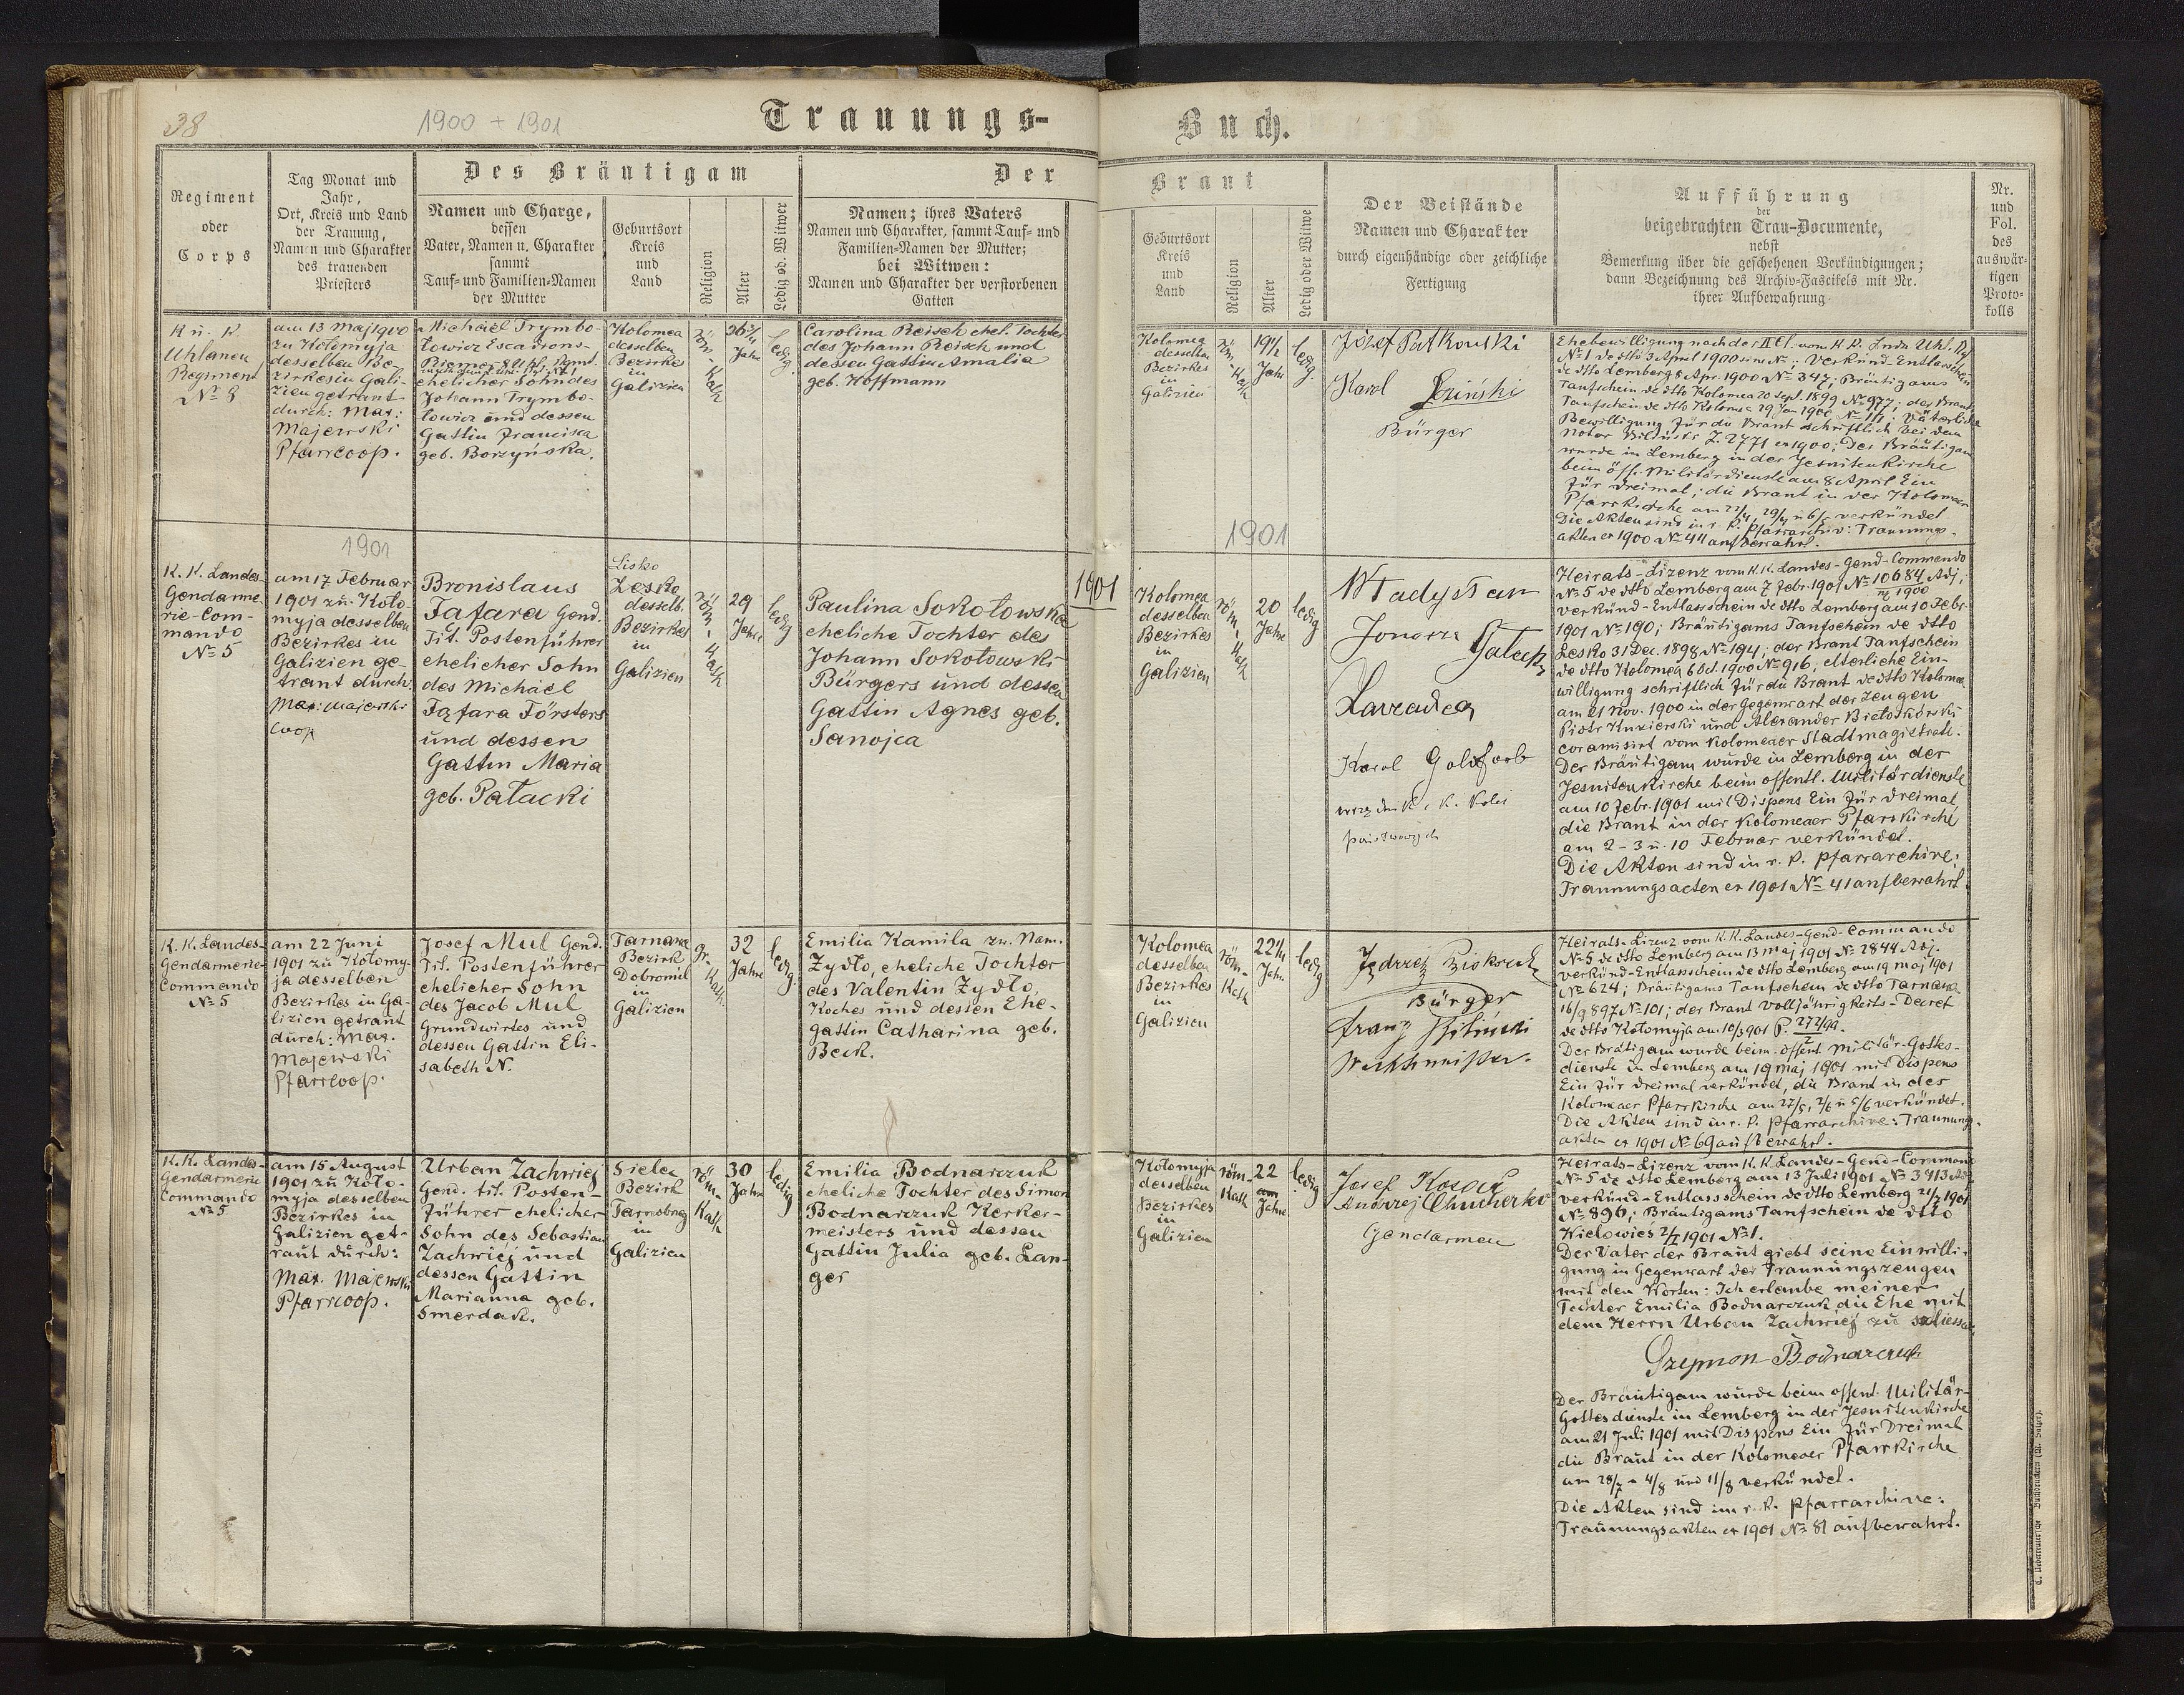 38
1900 + 1901
Trauungs-
Buch.
Regiment
oder
Corps
Tag Monat und
Jahr,
Ort, Kreis und Land
der Trauung,
Namen und Charakter
des trauenden
Priesters
Des Bräutigam
Namen und Charge,
dessen
Vater, Namen u. Charakter
sammt
Tauf- und Familien-Namen
der Mutter
Geburtsort
Kreis
und
Land
Religion
Alter
Ledig od. Witwer
Der
Namen; ihres Vaters
Namen und Charakter, sammt Tauf- und
Familien-Namen der Mutter;
bei Witwen:
Namen und Charakter der verstorbenen
Gatten
Braut
Geburtsort
Kreis
und
Land
Religion
Alter
Ledig oder Witwe
Der Beistände
Namen und Charakter
durch eigenhändige oder zeichliche
Fertigung
Aufführung
der
beigebrachten Trau-Documente,
nebst
Bemerkung über die geschehenen Verkündigungen;
dann Bezeichnung des Archiv-Fascikels mit Nr.
ihrer Aufbewahrung
Nr.
und
Fol.
des
auswär-
tigen
Proto-
kolls
K u. K
Uhlanen
Regiment
№ 8
am 13 Maj 1900
zu Kołomyja
desselben Be-
zirkes in Gali-
zien getraut
durch: Max:
Majewski
Pfarrcoop.
Michael Trymbo-
towicz Escadrons-
ehelicher Sohn des
Johann Trymbo-
towicz und dessen
Gattin Francisca
geb. Borzyńska.
Kolomea
desselben
Bezirkes
in
Galizien
röm-
Kath
26 3/4
Jahre
ledig.
Carolina Reisch ehel. Tochter
des Johann Reisch und
dessen Gattin Amalia
geb. Hoffmann
Kolomea
desselben
Bezirkes
in
Galizien
röm-
Kath
19 1/2
Jahr
ledig.
Józef Patkowski
Karol
Bürger
Ehebewilligung nach der II Cl. vom K.K.
№ 1 de dtto 3 April 1900 sine №; Verkünd-Entlassschein
de dtto Lemberg 8 Apr. 1900 № 347; Bräutigams
Taufschein de dtto Kolomea 20 Sept. 1899 № 977; der Braut
Taufschein de dtto Kolomea 29 Jan 1900 №; Väterliche
Bewilligung für die Braut schriftlich bei dem
Notar Z. 2771 ex 1900; Der Bräutigam
wurde in Lemberg in der Jesuitenkirche
beim öff. Militärdienste am 8 April Ein
für dreimal; die Braut in der Kolomeaer
Pfarrkirche am 22/4, 29/4 u 6/5 verkündet
Die Akten sind in r. k. Pfarrarchiv: Trauungs-
akten ex 1900 № 44 aufbewahrt.
1901
1901
1901
K. K. Landes-
Gendarme-
rie-Com-
mando
№ 5
am 17 Februar
1901 zu Koło-
myja desselben
Bezirkes in
Galizien ge-
traut durch:
Max: Majewski
Coop
Bronislaus
Fafara Gend.
Tit. Postenführer
ehelicher Sohn
des Michael
Fafara Försters
und dessen
Gattin Maria
geb. Pałacki
Lisko
Lesko
desselb.
Bezirkes
in
Galizien
röm-
Kath
29
Jahre
ledig
Paulina Sokołowska
eheliche Tochter des
Johann Sokołowski
Bürgers und dessen
Gattin Agnes geb.
Sanojca
Kolomea
desselben
Bezirkes
in
Galizien
röm-
Kath
20
Jahre
ledig
Karol Goldfarb
Heirats-Lizenz vom K.K. Landes-Gend-Commando
№ 5 de dtto Lemberg am 7 Febr 1901 № 10684 Adj.
Verkünd-Entlassschein de dtto Lemberg am 10 Febr
1901 № 190; Bräutigams Taufschein de dtto
Lesko 31 Dec. 1898 № 194; der Braut Taufschein
de dtto Kolomea 6 Oct. 1900 № 916, elterliche Ein-
willigung schriftlich für die Braut de dtto Kolomea
am 21 Nov. 1900 in der Gegenwart der Zeugen
Piotr Kuzierski und Alexander Białoskórski
coramisirt vom Kolomeaer Stadtmagistrate.
Der Bräutigam wurde in Lemberg in der
Jesuitenkirche beim offentl. Militärdienste
am 10 Febr. 1901 mit Dispens Ein für dreimal,
die Braut in der Kolomeaer Pfarrkirche
am 2 - 3 u. 10 Februar verkündet.
Die Akten sind in r. k. Pfarrarchive:
Trauungsacten ex 1901 № 41 aufbewahrt.
K. K. Landes-
Gendarmerie-
Commando
№ 5
am 22 Juni
1901 zu Kołomy-
ja desselben
Bezirkes in Ga-
lizien getraut
durch: Max.
Majewski
Pfarrcoop.
Josef Mul Gend.
Tit. Postenführer
ehelicher Sohn
des Jacob Mul
Grundwirtes und
dessen Gattin Eli-
sabeth N.
Tarnawa
Bezirk
Dobromil
in
Galizien
gr.
Kath.
32
Jahre
ledig.
Emilia Kamila zw. Nam.
Zydło, eheliche Tochter
des Valentin Zydło,
Koches und dessen Ehe-
gattin Catharina geb.
Beck.
Kolomea
desselben
Bezirkes
in
Galizien
röm-
Kath
22 1/4
Jahr
ledig
Jędrzej
Bürger
Franz
Wachtmeister.
Heirats-Lizenz vom K.K. Landes-Gend-Commando
№ 5 de dtto Lemberg am 13 Maj 1901 № 2844 Adj.
Verkünd-Entlassschein de dtto Lemberg am 19 Maj 1901
№ 624; Bräutigams Taufschein de dtto Tarnawa
16/9 897 № 101; der Braut Volljährigkeits-Decret
de dtto Kołomyja am 10/3 901 P. 272/9a.
Der Bräutigam wurde beim öffent. Militär-Gottes-
dienste in Lemberg am 19 Maj 1901 mit Dispens
Ein für dreimal verkündet, die Braut in der
Kolomeaer Pfarrkirche am 27/5, 2/6 u 5/6 verkündet.
Die Akten sind in r. k. Pfarrarchive: Trauungs-
akten ex 1901 № 69 aufbewahrt.
K. K. Landes-
Gendarmerie
Commando
№ 5
am 15 August
1901 zu Koło-
myja desselben
Bezirkes in
Galizien get-
raut durch:
Max. Majewski
Pfarrcoop.
Urban Zachwiej
Gend. tit. Posten-
führer ehelicher
Sohn des Sebastian
Zachwiej und
dessen Gattin
Marianna geb.
Smerdak.
Sielec
Bezirk
Tarnobrzeg
in
Galizien
röm-
Kath
30
Jahre
ledig
Emilia Bodnarczuk
eheliche Tochter des Simon
Bodnarczuk Kerker-
meisters und dessen
Gattin Julia geb. Lan-
ger
Kołomyja
desselben
Bezirkes
in
Galizien
röm-
Kath
22
Jahre
ledig
Josef Kosak
Andrzej
Gendarmen
Heirats-Lizenz vom K.K. Landes-Gend-Command
№ 5 de dtto Lemberg am 13 Juli 1901 № 3913 Adj
Verkünd-Entlassschein de dtto Lemberg 21/7 1901
№ 896; Bräutigams Taufschein de dtto
Wielowieś 2/I 1901 № 1.
Der Vater der Braut giebt seine Einwilli-
gung in Gegenwart der Trauungszeugen
mit den Worten: Ich erlaube meiner
Tochter Emilia Bodnarczuk die Ehe mit
dem Herrn Urban Zachwiej zu schliessen.
Szymon Bodnarczuk
Der Bräutigam wurde beim offent. Militär-
Gottesdienste in Lemberg in der Jesuitenkirche
am 21 Juli 1901 mit Dispens Ein für Dreimal
die Braut in der Kolomeaer Pfarrkirche
am 28/7 - 4/8 und 11/8 verkündet.
Die Akten sind im r. k. Pfarrarchive:
Trauungsakten ex 1901 № 81 aufbewahrt.